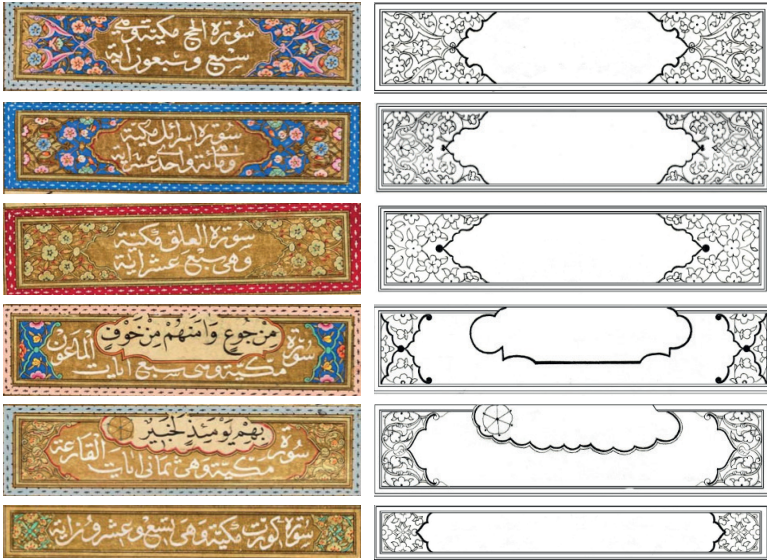 سورة الحج مكية وهي
سبع وسبعون اية
سورة اسرائل مكية
ومائة واحدى عشر اية
سورة العلق مكية
وهى سبع عشر اية
مِنْ جُوعٍ وَامَنَهُمْ مِنْ خَوْفٍ
سورة الماعون
مكية وهى سبع ايات
بِهِمْ يَوْمَئِذٍ لَخَبِيرٌ
سورة القارعة
مكية وهى ثمانى ايات
سورة كورت مكية وهى تسع وعشرون اية